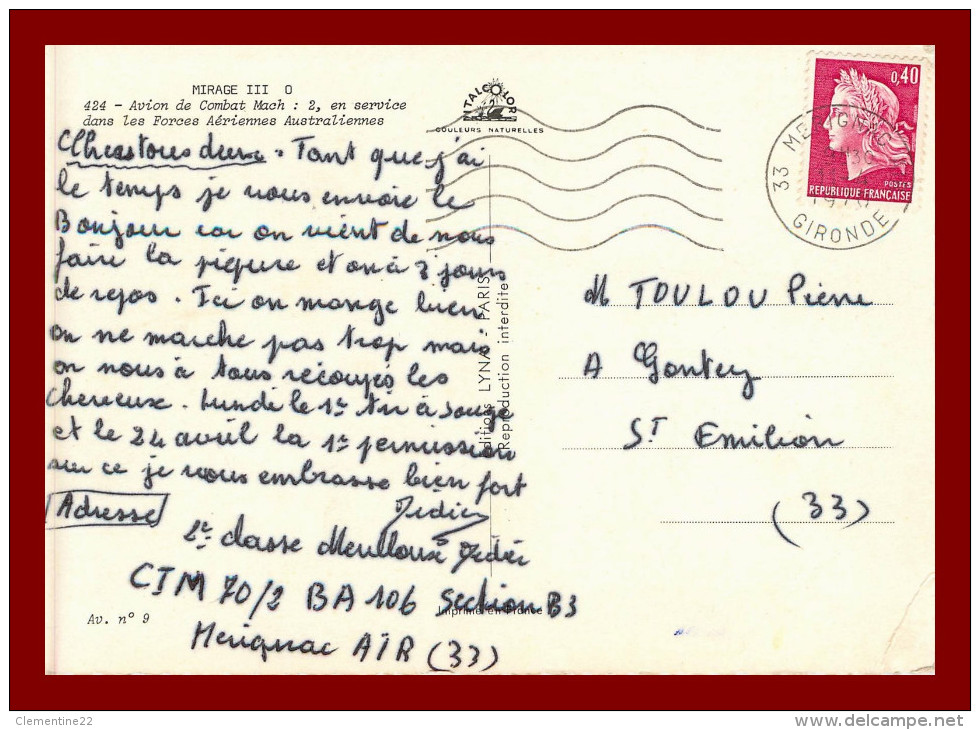 MIRAGE III O
424 - Avion de Combat Mach : 2, en service
dans les Forces Aériennes Australiennes
ITALCOLOR
COULEURS NATURELLES
Chers tous deux = Tant que j'ai
le temps je vous envoie le
Bonjour car on vient de nous
faire la piqure et on à 3 jours
de repos. Ici on mange bien
on ne marche pas trop mais
on nous à tous recoupés les
Cheveux. Lundi le 1er tir à Souge
et le 24 avril la 1er permission
sur ce je vous embrasse bien fort
Didier
Adresse
2e classe Meulloux Didier
CIM 70/2 BA 106 Section B3
Merignac AIR (33)
Av. n° 9
Editions LYNA - PARIS
Reproduction interdite
Imprimé en France
0,40
POSTES
REPUBLIQUE FRANÇAISE
33 MERIGNAC
1970
GIRONDE
M TOULOU Pierre
A Gontey
ST Emilion
(33)
Clementine22
www.delcampe.net